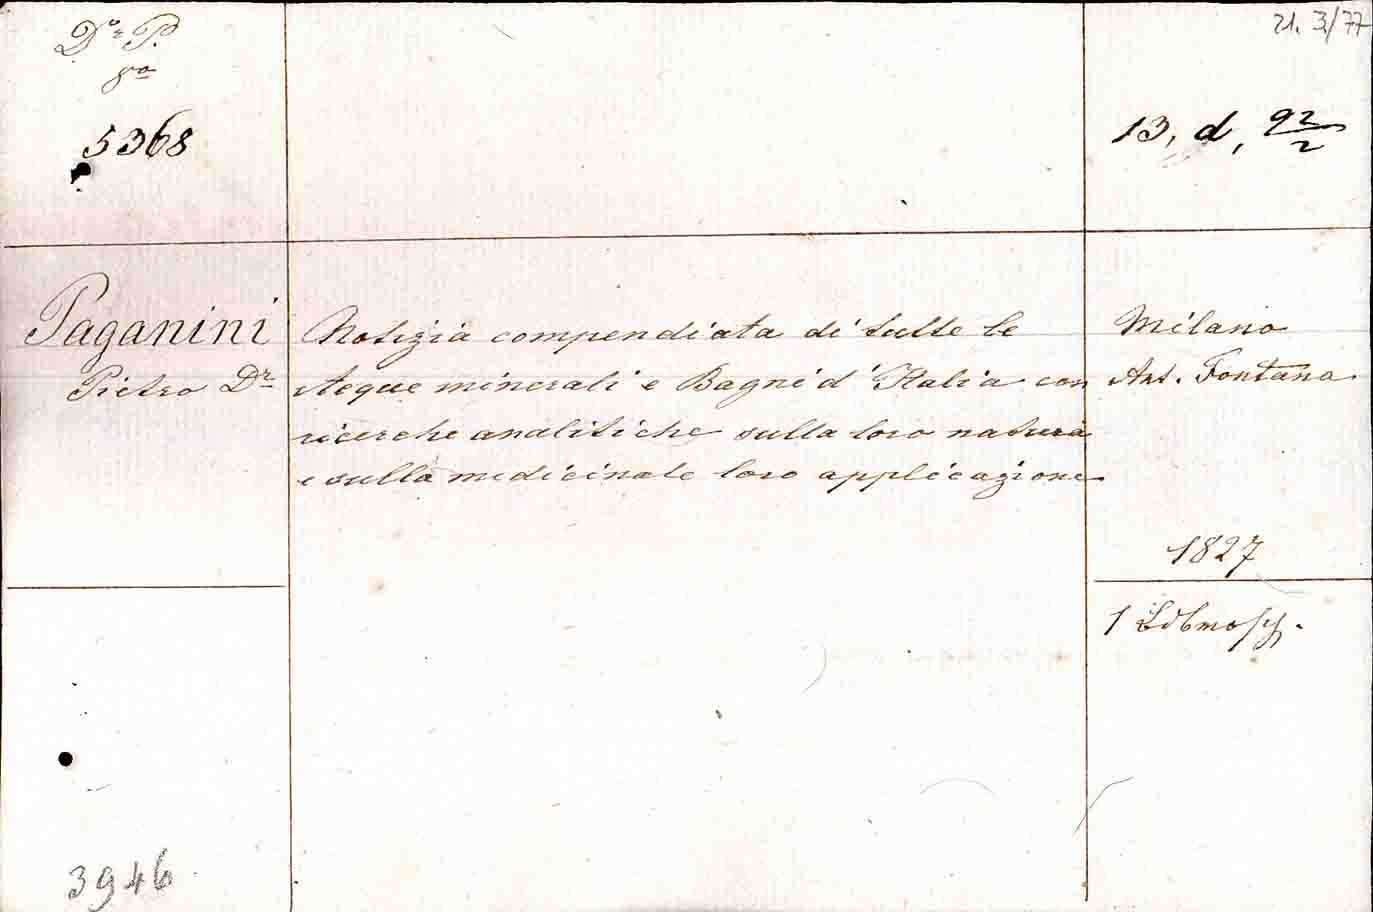 Dº P.
8º
5368
21. 3/77
13, d, 92/2
Paganini
Pietro Dr
Notizia compendiata di tutte le
Acque minerali e Bagni d'Italia con
ricerche analitiche sulla loro natura
e sulla medicinale loro applicazione
Milano
Ant. Fontana
1827
1
3946